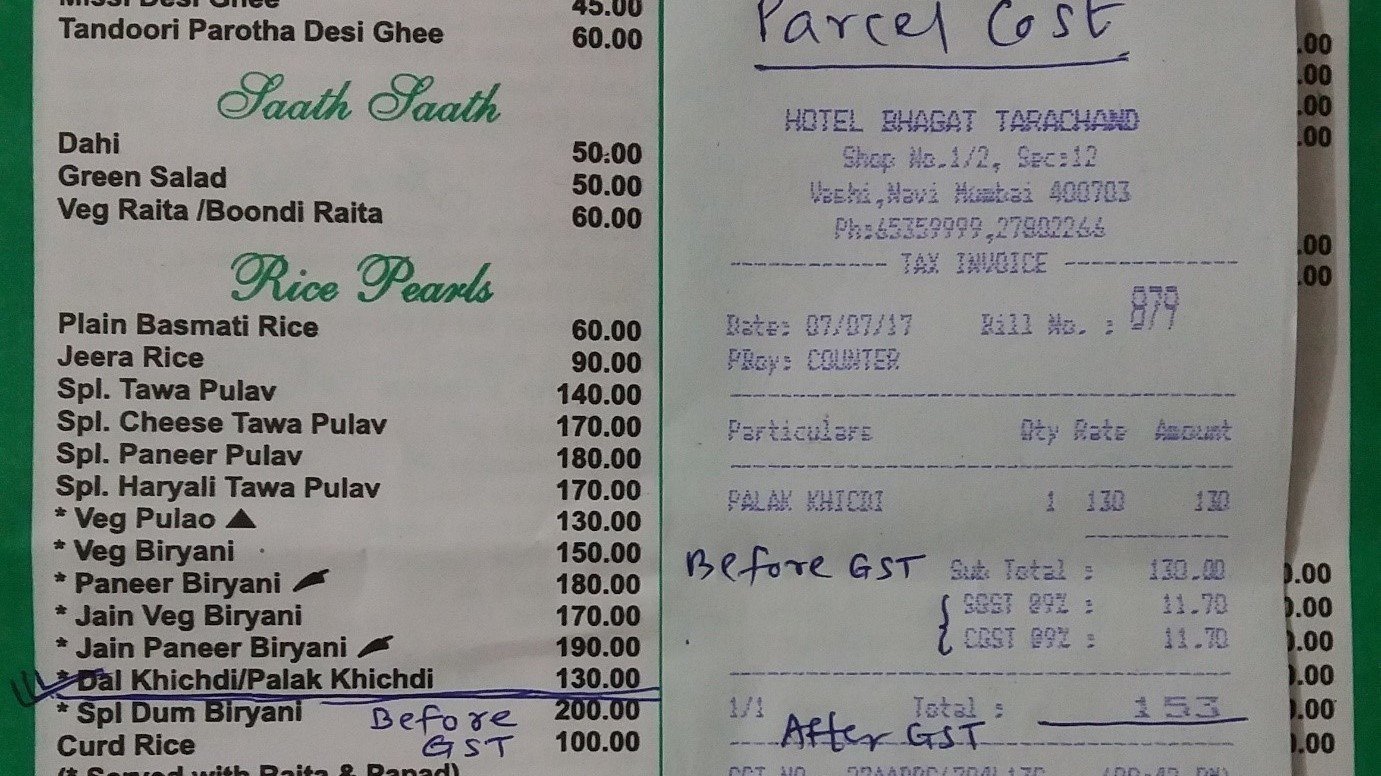 Missi Desi Ghee 45.00
Tandoori Parotha Desi Ghee 60.00
Saath Saath
Dahi 50.00
Green Salad 50.00
Veg Raita /Boondi Raita 60.00
Rice Pearls
Plain Basmati Rice 60.00
Jeera Rice 90.00
Spl. Tawa Pulav 140.00
Spl. Cheese Tawa Pulav 170.00
Spl. Paneer Pulav 180.00
Spl. Haryali Tawa Pulav 170.00
* Veg Pulao ▲ 130.00
* Veg Biryani 150.00
* Paneer Biryani 180.00
* Jain Veg Biryani 170.00
* Jain Paneer Biryani 190.00
* Dal Khichdi/Palak Khichdi 130.00
* Spl Dum Biryani 200.00
Before
GST
Curd Rice 100.00
(* Served with Raita & Papad)
Parcel Cost
HOTEL BHAGAT TARACHAND
Shop No.1/2, Sec:12
Vashi,Navi Mumbai 400703
Ph:65359999,27802266
TAX INVOICE
Date: 07/07/17 Bill No. : 879
PBoy: COUNTER
Particulars Qty Rate Amount
PALAK KHICDI 1 130 130
Before GST Sub Total : 130.00
{ SGST @9% : 11.70
CGST @9% : 11.70
1/1 Total : 153
After GST
.00
.00
.00
.00
.00
.00
0.00
0.00
0.00
0.00
0.00
0.00